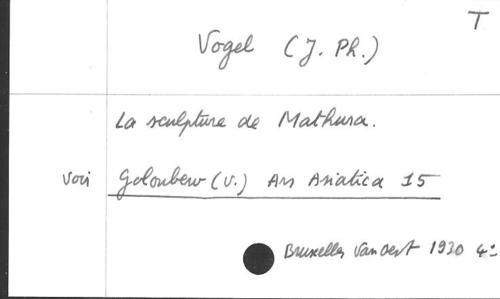 T
Vogel (J. Ph.)
La sculpture de Mathura.
voir Goloubew (V.) Ars Asiatica 15
Bruxelles Van Oest 1930 4º